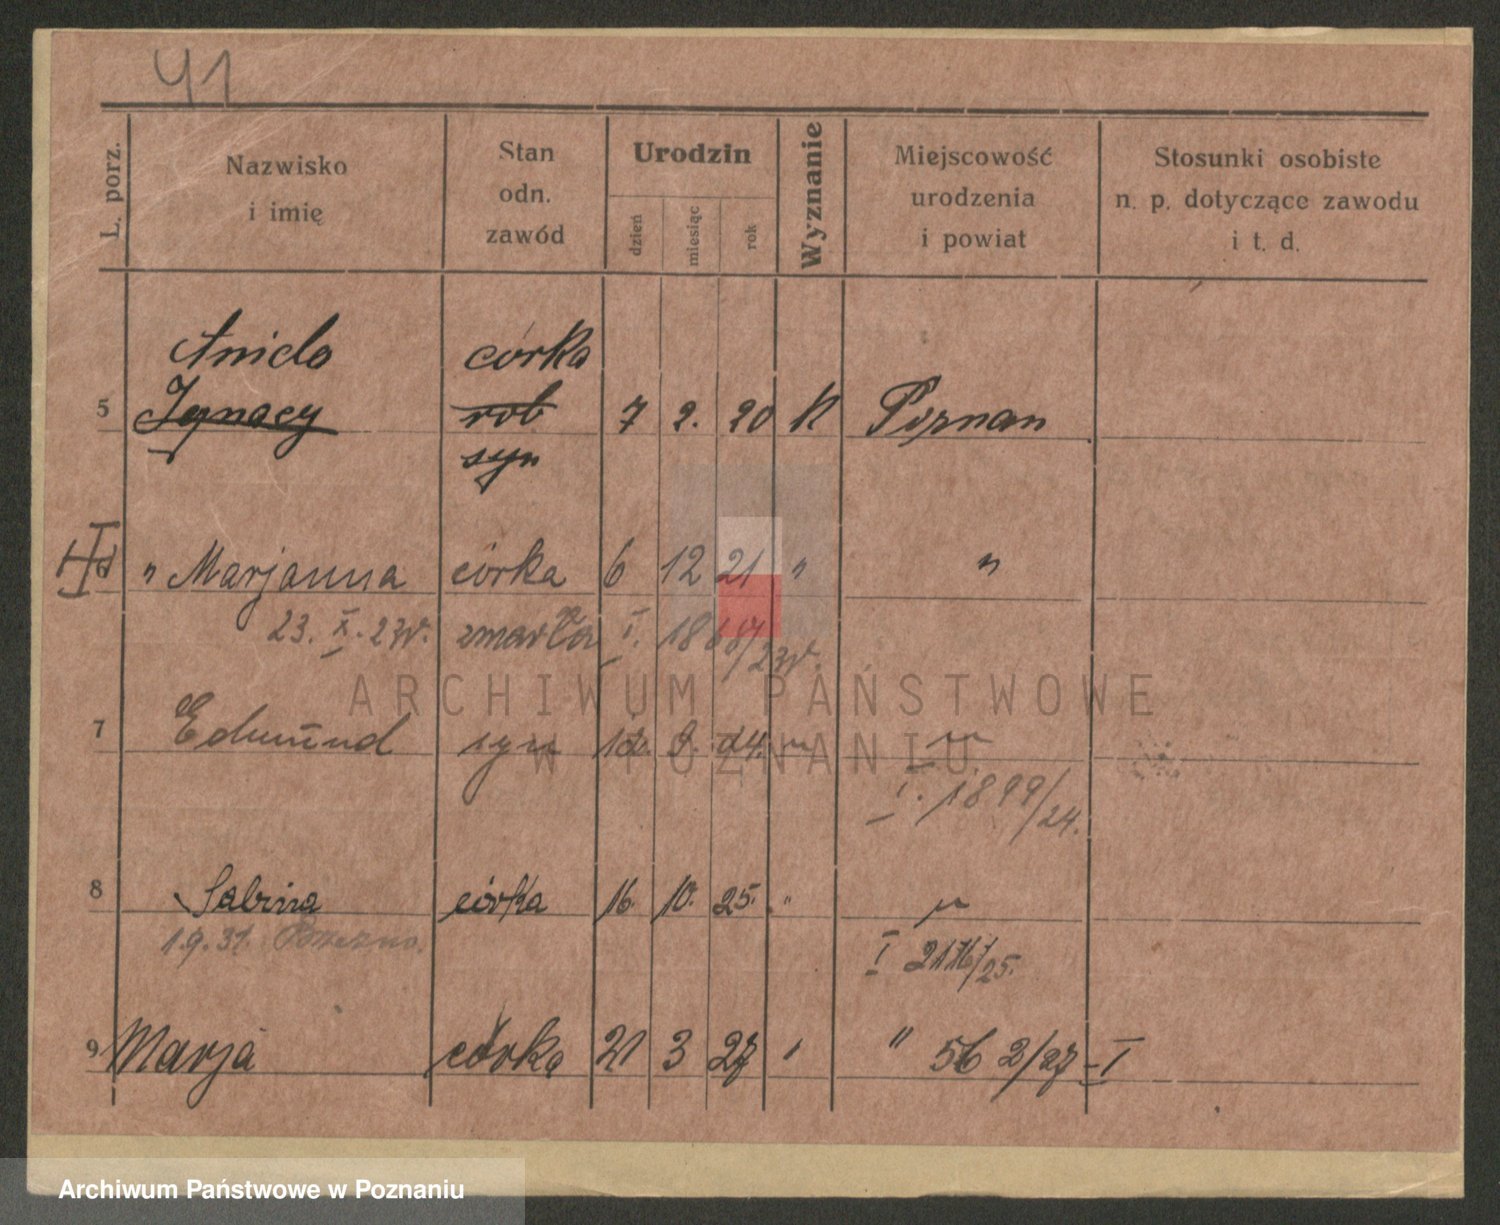 41
L. porz.
Nazwisko
i imię
Stan
odn.
zawód
Urodzin
dzień
miesiąc
rok
Wyznanie
Miejscowość
urodzenia
i powiat
Stosunki osobiste
n. p. dotyczące zawodu
i t. d.
córka
5 Ignacy rob 7 2. 20 K Poznan
syn
" Marjanna córka 6 12 21 " "
23. X. 23r. zmarła I. /23r.
7 Edmund syn 9. 24. " "
I. 1899/24.
8 Sabina córka 16. 10. 25. " "
1.9.31.
I /25.
9 Marja córka 21 3 27 " " 56 2/27 I
ARCHIWUM PAŃSTWOWE
W POZNANIU
Archiwum Państwowe w Poznaniu